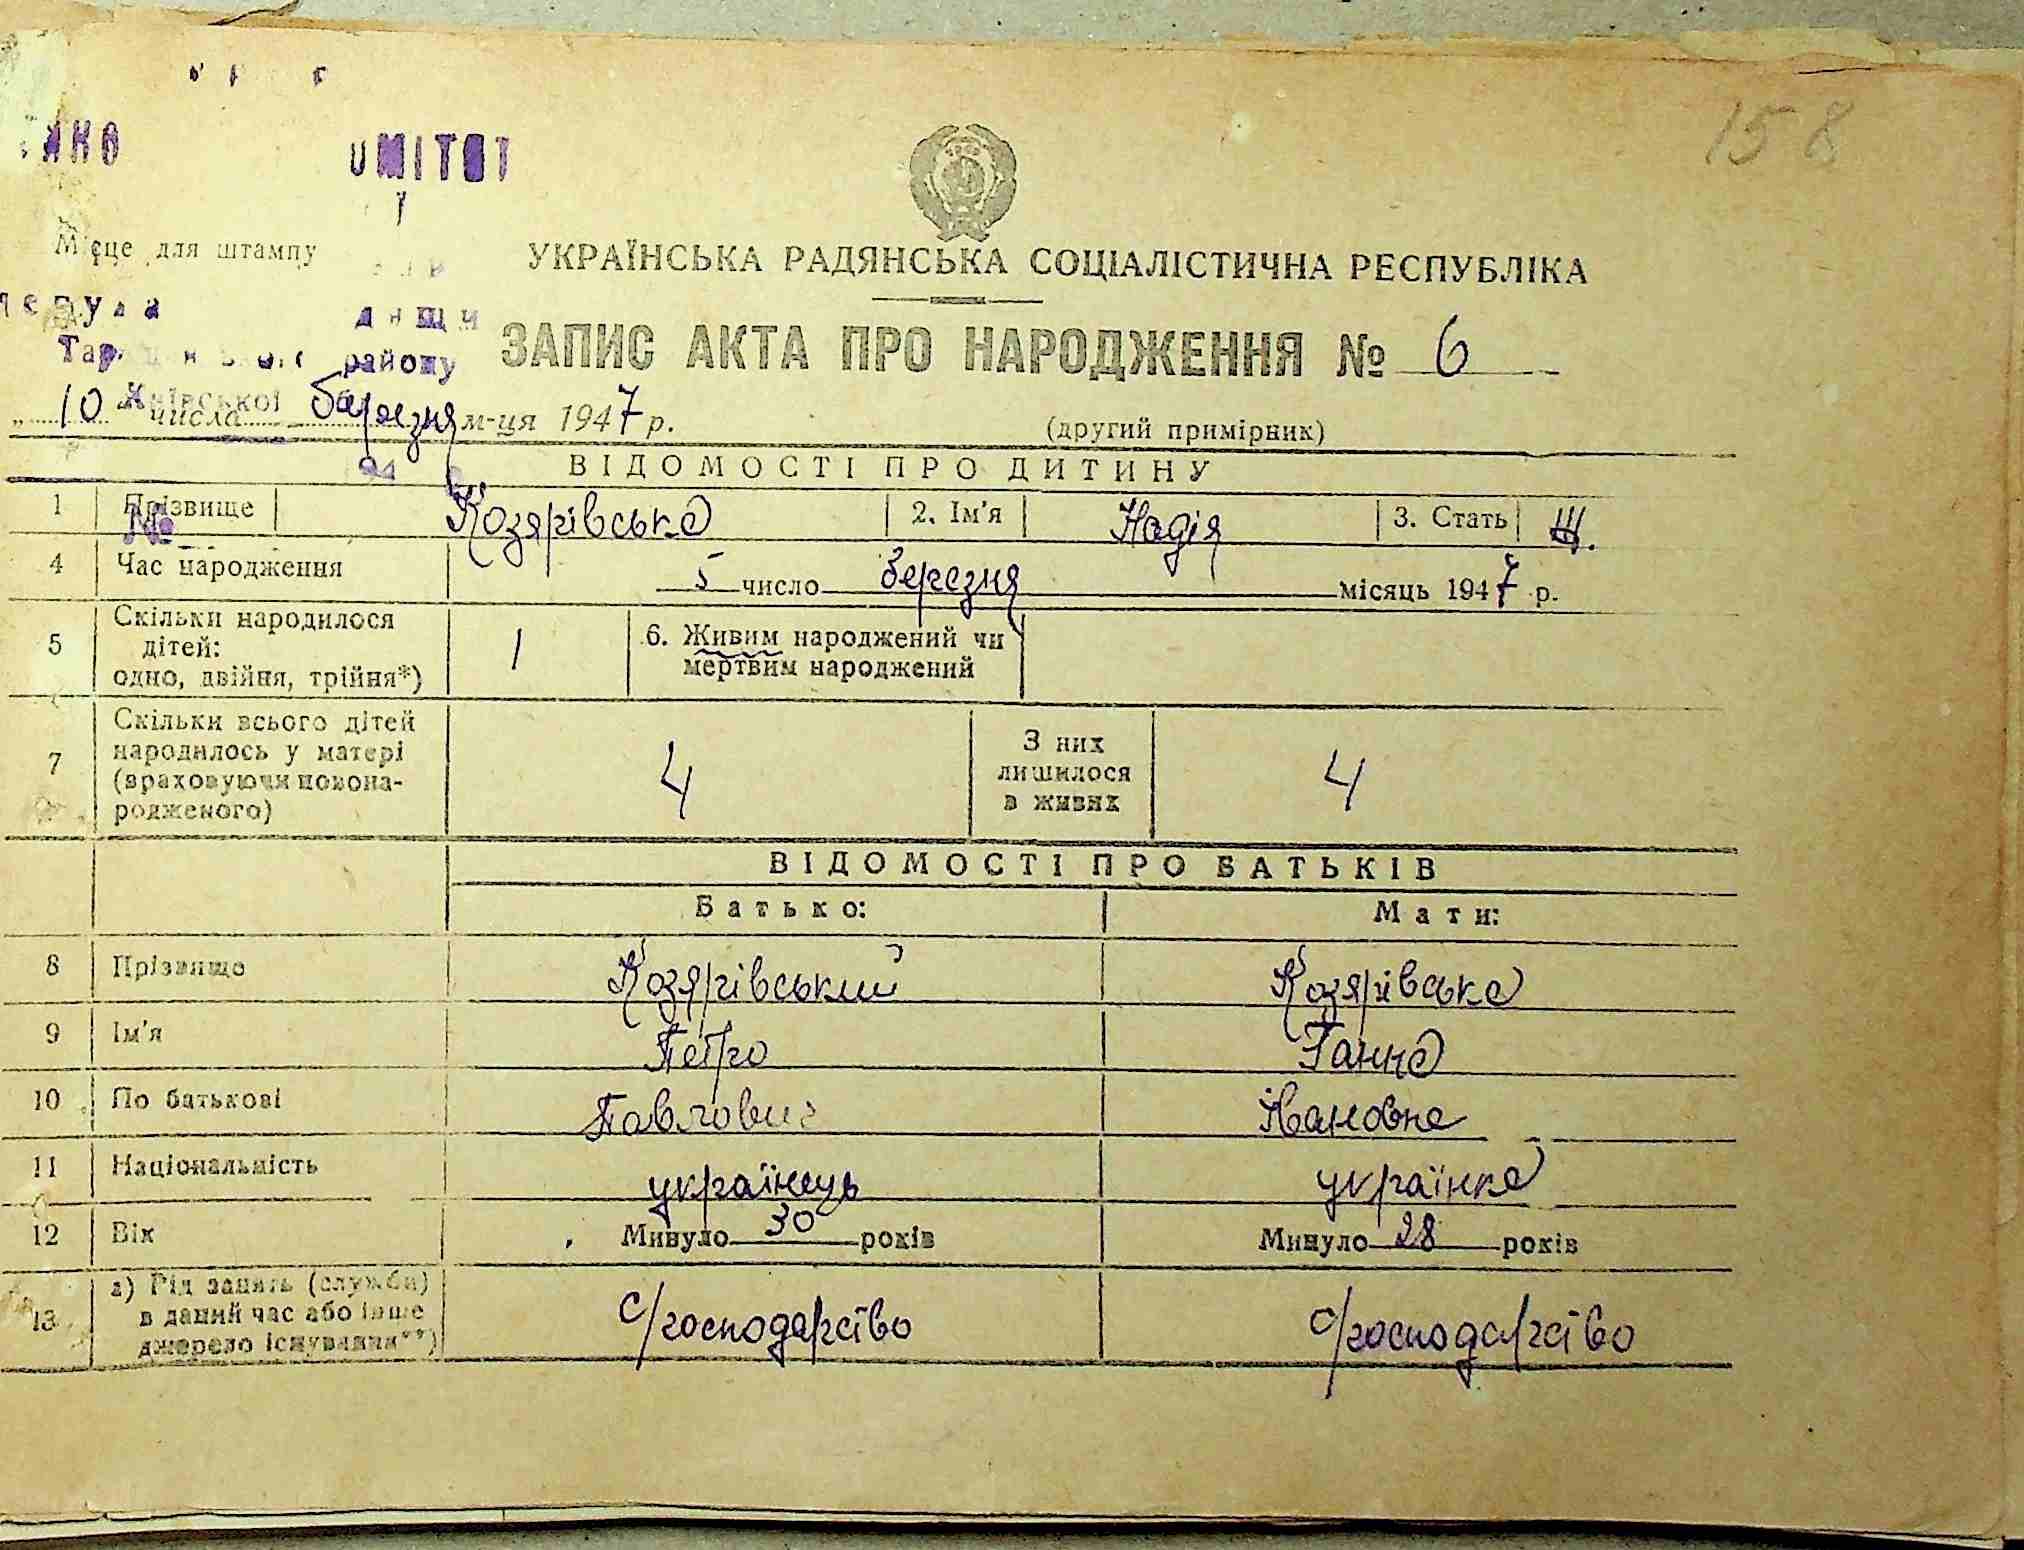 158
Місце для штампу
УКРАЇНСЬКА РАДЯНСЬКА СОЦІАЛІСТИЧНА РЕСПУБЛІКА
району
ЗАПИС АКТА ПРО НАРОДЖЕННЯ № 6
Київської
„ 10 " числа березня м-ця 1947 р.
(другий примірник)
ВІДОМОСТІ ПРО ДИТИНУ
1 Прізвище Козярівська 2. Ім'я Надія 3. Стать Ж.
№
4 Час народження 5 число березня місяць 1947 р.
5 Скільки народилося дітей: одно, двійня, трійня*) 1 6. Живим народжений чи мертвим народжений
7 Скільки всього дітей народилось у матері (враховуючи новонародженого) 4 З них лишилося в живих 4
ВІДОМОСТІ ПРО БАТЬКІВ
Батько: Мати:
8 Прізвище Козярівський Козярівська
9 Ім'я Петро Ганна
10 По батькові Павлович Івановна
11 Національність українець українка
12 Вік Минуло 30 років Минуло 28 років
13 а) Рід занять (служби) в даний час або інше джерело існування**) с/господарство с/господарство